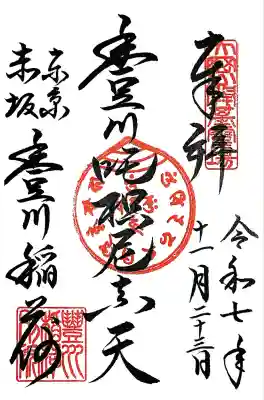 奉拝
令和七年
十一月二十三日
豊川吒枳尼真天
東京
赤坂
豊川稲荷